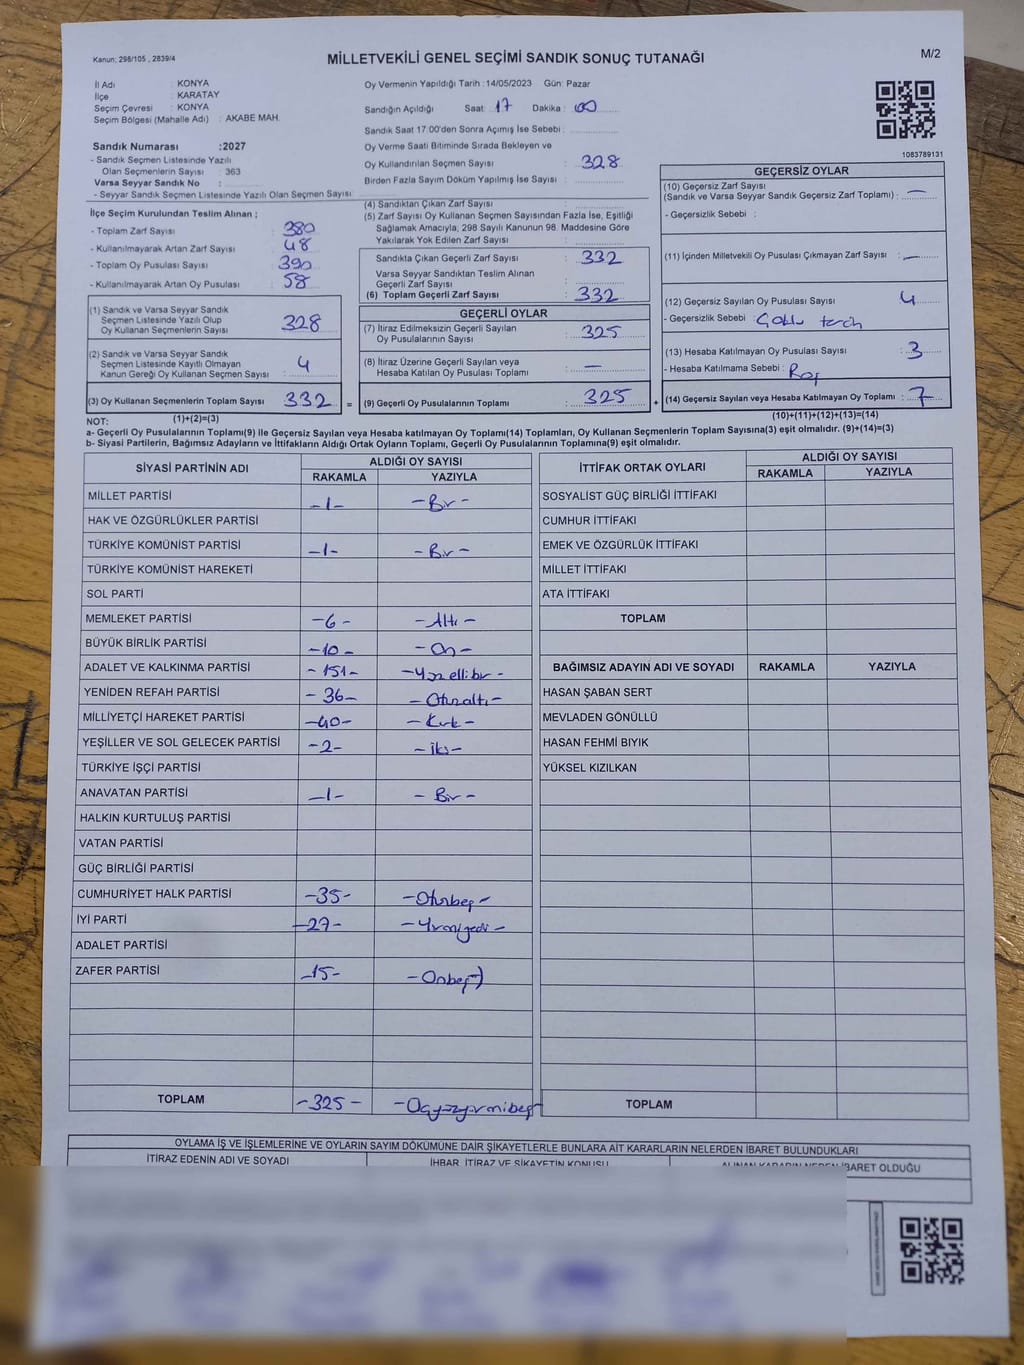 Kanun; 298/105 , 2839/4
MİLLETVEKİLİ GENEL SEÇİMİ SANDIK SONUÇ TUTANAĞI
M/2
İl Adı : KONYA
İlçe : KARATAY
Seçim Çevresi : KONYA
Seçim Bölgesi (Mahalle Adı) : AKABE MAH.
Sandık Numarası :2027
- Sandık Seçmen Listesinde Yazılı
Olan Seçmenlerin Sayısı : 363
Varsa Seyyar Sandık No :
- Seyyar Sandık Seçmen Listesinde Yazılı Olan Seçmen Sayısı :
Oy Vermenin Yapıldığı Tarih :14/05/2023 Gün: Pazar
Sandığın Açıldığı Saat: 17 Dakika : 00
Sandık Saat 17:00'den Sonra Açımış İse Sebebi :
Oy Verme Saati Bitiminde Sırada Bekleyen ve
Oy Kullandırılan Seçmen Sayısı : 328
Birden Fazla Sayım Döküm Yapılmış İse Sayısı :
1083789131
İlçe Seçim Kurulundan Teslim Alınan ;
- Toplam Zarf Sayısı : 380
- Kullanılmayarak Artan Zarf Sayısı : 48
- Toplam Oy Pusulası Sayısı : 390
- Kullanılmayarak Artan Oy Pusulası : 58
(1) Sandık ve Varsa Seyyar Sandık
Seçmen Listesinde Yazılı Olup
Oy Kullanan Seçmenlerin Sayısı : 328
(2) Sandık ve Varsa Seyyar Sandık
Seçmen Listesinde Kayıtlı Olmayan
Kanun Gereği Oy Kullanan Seçmen Sayısı : 4
(3) Oy Kullanan Seçmenlerin Toplam Sayısı : 332 =
(1)+(2)=(3)
(4) Sandıktan Çıkan Zarf Sayısı :
(5) Zarf Sayısı Oy Kullanan Seçmen Sayısından Fazla İse, Eşitliği
Sağlamak Amacıyla; 298 Sayılı Kanunun 98. Maddesine Göre
Yakılarak Yok Edilen Zarf Sayısı :
Sandıkta Çıkan Geçerli Zarf Sayısı : 332
Varsa Seyyar Sandıktan Teslim Alınan
Geçerli Zarf Sayısı :
(6) Toplam Geçerli Zarf Sayısı : 332
GEÇERLİ OYLAR
(7) İtiraz Edilmeksizin Geçerli Sayılan
Oy Pusulalarının Sayısı : 325
(8) İtiraz Üzerine Geçerli Sayılan veya
Hesaba Katılan Oy Pusulası Toplamı : —
(9) Geçerli Oy Pusulalarının Toplamı : 325 +
GEÇERSİZ OYLAR
(10) Geçersiz Zarf Sayısı
(Sandık ve Varsa Seyyar Sandık Geçersiz Zarf Toplamı) : —
- Geçersizlik Sebebi :
(11) İçinden Milletvekili Oy Pusulası Çıkmayan Zarf Sayısı : —
(12) Geçersiz Sayılan Oy Pusulası Sayısı : 4
- Geçersizlik Sebebi : Çoklu tercih
(13) Hesaba Katılmayan Oy Pusulası Sayısı : 3
- Hesaba Katılmama Sebebi : Boş
(14) Geçersiz Sayılan veya Hesaba Katılmayan Oy Toplamı : 7
(10)+(11)+(12)+(13)=(14)
NOT:
a- Geçerli Oy Pusulalarının Toplamı(9) ile Geçersiz Sayılan veya Hesaba katılmayan Oy Toplamı(14) Toplamları, Oy Kullanan Seçmenlerin Toplam Sayısına(3) eşit olmalıdır. (9)+(14)=(3)
b- Siyasi Partilerin, Bağımsız Adayların ve İttifakların Aldığı Ortak Oyların Toplamı, Geçerli Oy Pusulalarının Toplamına(9) eşit olmalıdır.
SİYASİ PARTİNİN ADI ALDIĞI OY SAYISI
RAKAMLA YAZIYLA
MİLLET PARTİSİ -1- -Bir-
HAK VE ÖZGÜRLÜKLER PARTİSİ
TÜRKİYE KOMÜNİST PARTİSİ -1- -Bir-
TÜRKİYE KOMÜNİST HAREKETİ
SOL PARTİ
MEMLEKET PARTİSİ -6- -Altı-
BÜYÜK BİRLİK PARTİSİ -10- -On-
ADALET VE KALKINMA PARTİSİ -151- -Yüzellibir-
YENİDEN REFAH PARTİSİ -36- -Otuzaltı-
MİLLİYETÇİ HAREKET PARTİSİ -40- -Kırk-
YEŞİLLER VE SOL GELECEK PARTİSİ -2- -İki-
TÜRKİYE İŞÇİ PARTİSİ
ANAVATAN PARTİSİ -1- -Bir-
HALKIN KURTULUŞ PARTİSİ
VATAN PARTİSİ
GÜÇ BİRLİĞİ PARTİSİ
CUMHURİYET HALK PARTİSİ -35- -Otuzbeş-
İYİ PARTİ -27- -Yirmiyedi-
ADALET PARTİSİ
ZAFER PARTİSİ -15- -Onbeş-
TOPLAM -325- -Üçyüzyirmibeş
İTTİFAK ORTAK OYLARI ALDIĞI OY SAYISI
RAKAMLA YAZIYLA
SOSYALİST GÜÇ BİRLİĞİ İTTİFAKI
CUMHUR İTTİFAKI
EMEK VE ÖZGÜRLÜK İTTİFAKI
MİLLET İTTİFAKI
ATA İTTİFAKI
TOPLAM
BAĞIMSIZ ADAYIN ADI VE SOYADI RAKAMLA YAZIYLA
HASAN ŞABAN SERT
MEVLADEN GÖNÜLLÜ
HASAN FEHMİ BIYIK
YÜKSEL KIZILKAN
TOPLAM
OYLAMA İŞ VE İŞLEMLERİNE VE OYLARIN SAYIM DÖKÜMÜNE DAİR ŞİKAYETLERLE BUNLARA AİT KARARLARIN NELERDEN İBARET BULUNDUKLARI
İTİRAZ EDENİN ADI VE SOYADI İHBAR, İTİRAZ VE ŞİKAYETİN KONUSU ALINAN KARARIN NEDEN İBARET OLDUĞU